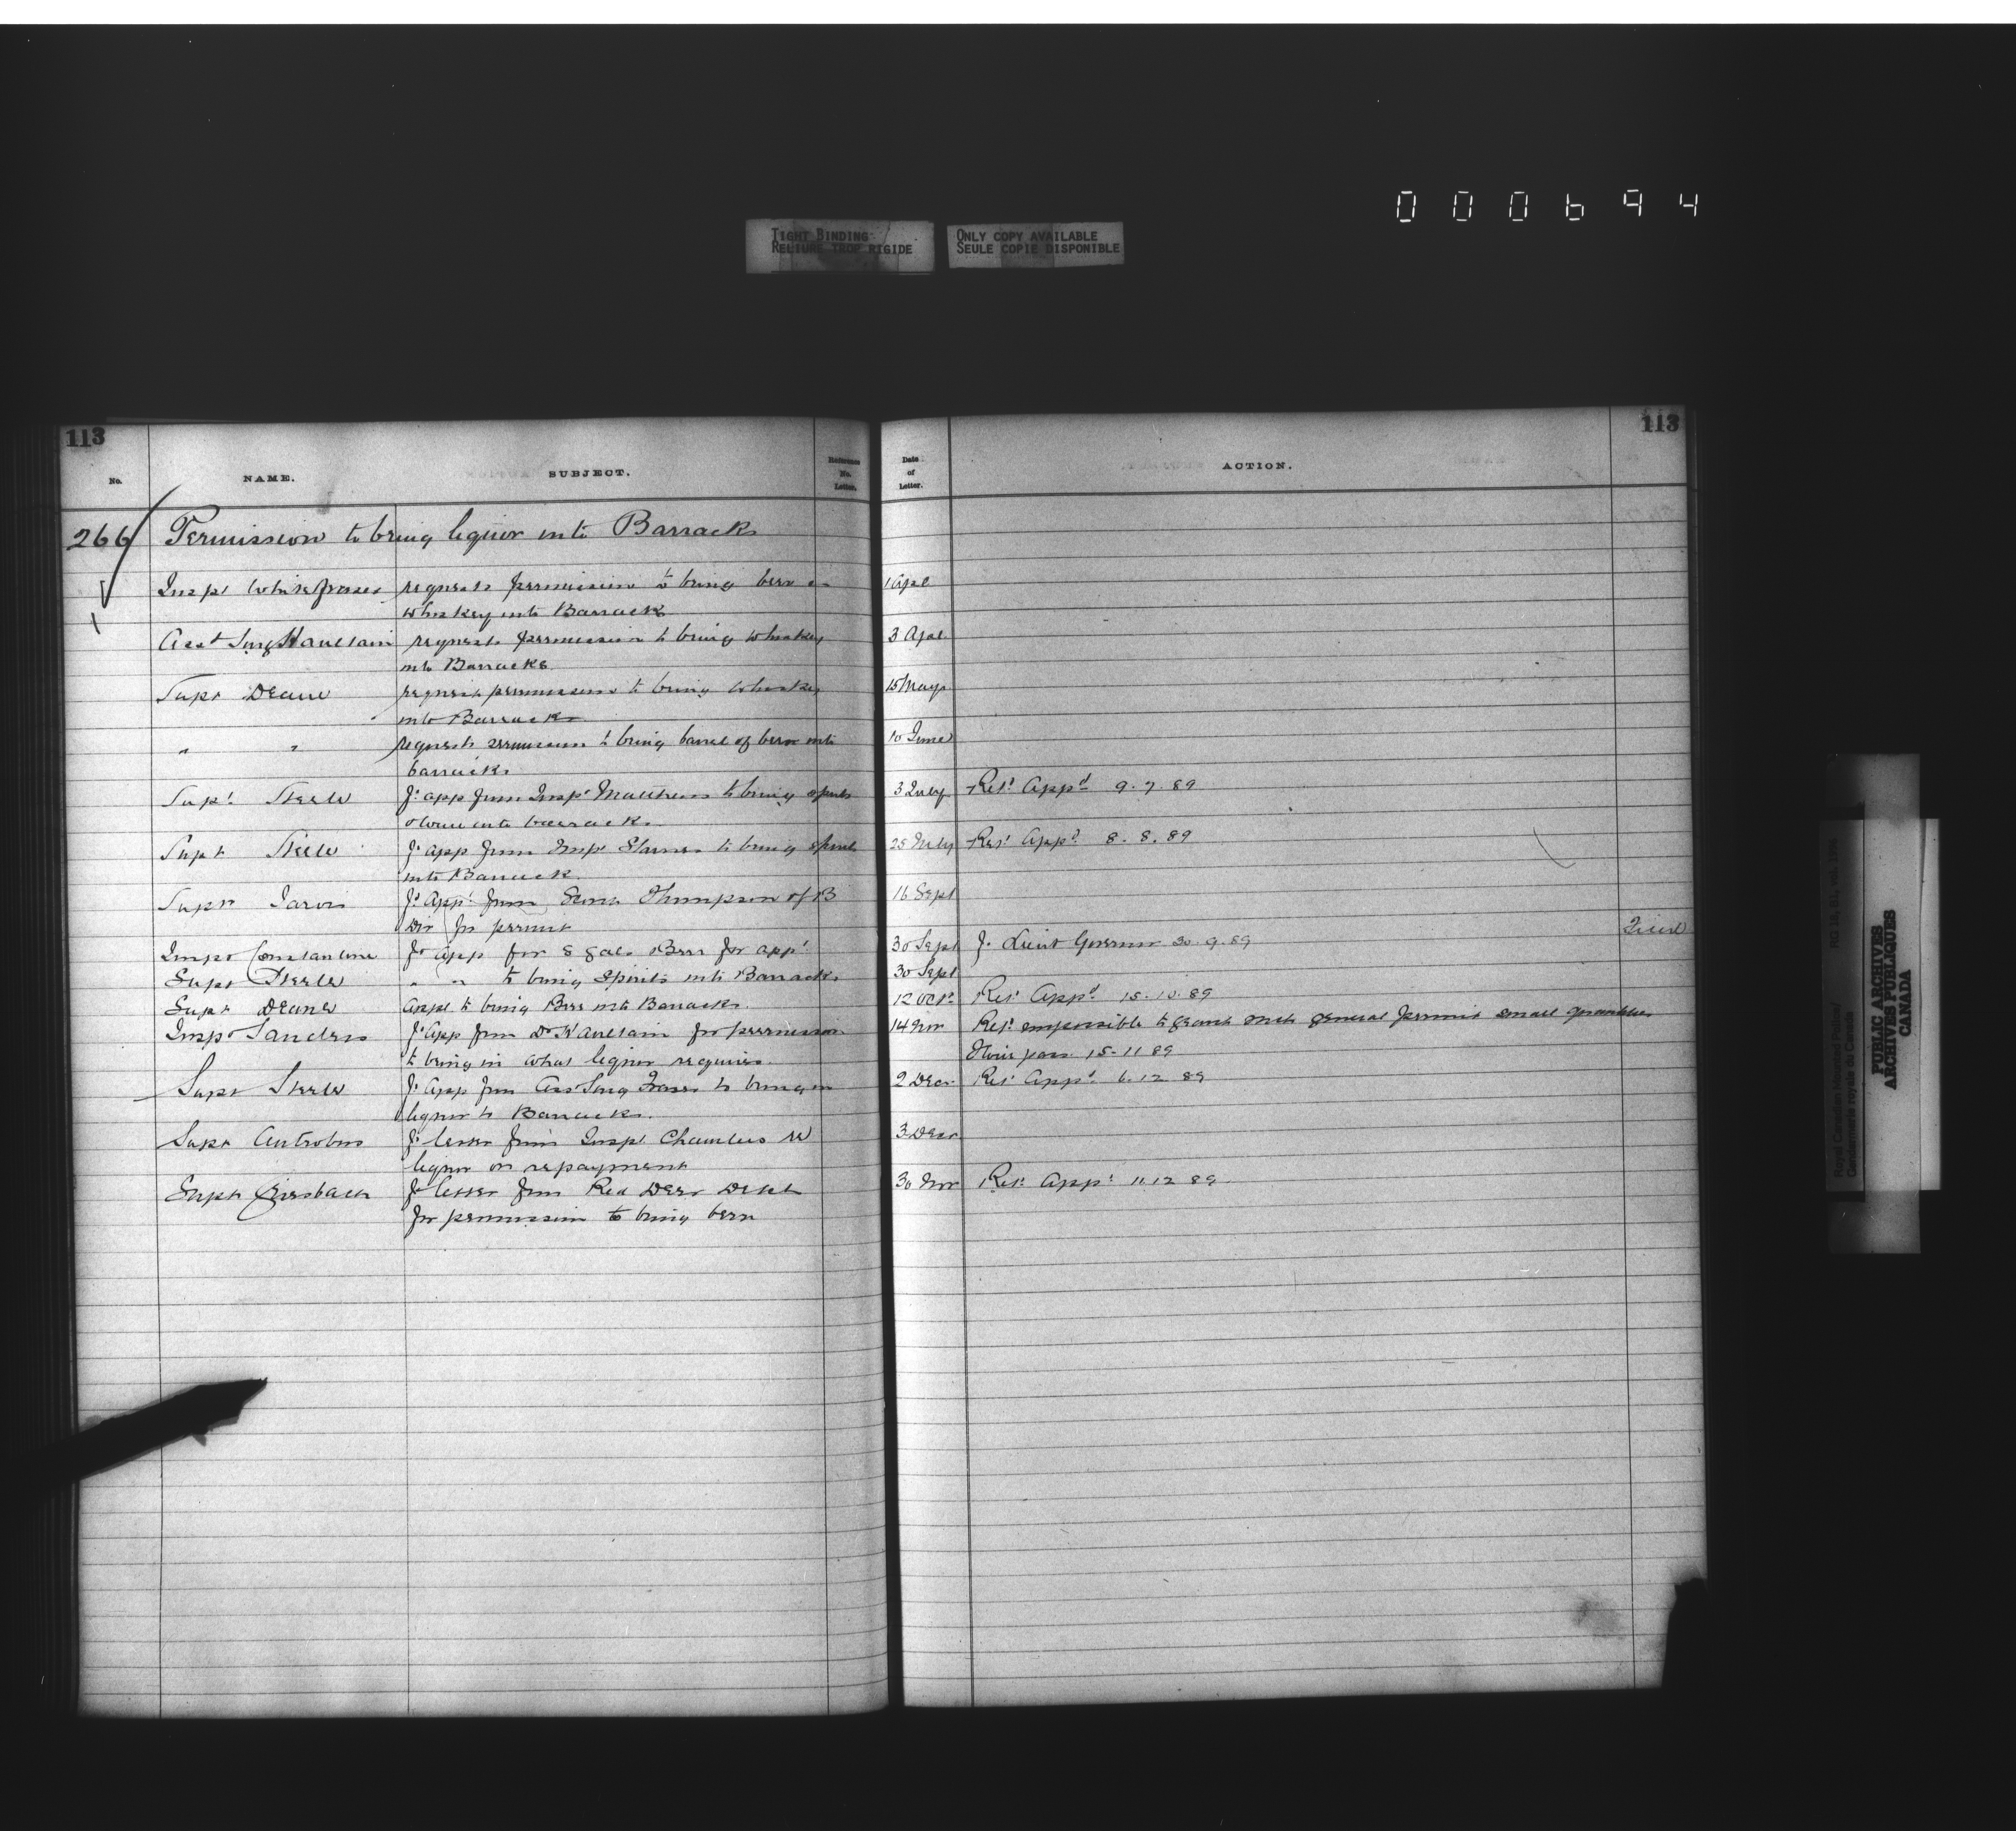 000694
TIGHT BINDING
RELIURE TROP RIGIDE
ONLY COPY AVAILABLE
SEULE COPIE DISPONIBLE
113
113
No.
NAME.
SUBJECT.
Reference No. Letter.
Date of Letter.
ACTION.
266 Permission to bring liquor into Barracks
Inspr White Fraser requests permission to bring beer & 1 Apl
whiskey into Barracks
Asst Surg Haultain requests permission to bring whiskey 3 Apl.
into Barracks
Supt Deane requests permission to bring whiskey 15 May
into Barracks
" " requests permission to bring barrel of beer into 10 June
barracks
Supt. Steele fs. app from Inspr Matthews to bring spirits 3 July Ret. Appd 9.7.89
& wine into barracks
Supt Steele fs. app from Inspr Starnes to bring spirits 25 July Ret. Appd. 8.8.89
into Barrack
Supt Jarvis fs. App. from Thompson of B 16 Sept
Div for permit
Inspr Constantine fs app for 8 gals Beer for app. 30 Sept f. Lieut Governor 30.9.89
Supt Steele " " to bring spirits into Barracks 30 Sept
Supt Deane appl to bring Beer into Barracks. 12 Oct. Ret. Appd. 15.10.89
Inspr Sanders fs. App from Dr Haultain for permission 14 Nov Ret. impossible to grant such general permit small quantities
to bring in what liquor requires. 15-11 89
Supt Steele fs. App from Ass. Surg Fraser to bring in 2 Dec. Ret. Appd. 6.12.89
liquor to Barracks.
Supt Antrobus fs. letter from Inspr Chambers re 3 Decr
liquor on repayment
Supt Griesbach fs letter from Red Deer Detcht 30 Nov Ret. App. 11.12 89.
for permission to bring beer
Royal Canadian Mounted Police/
Gendarmerie royale du Canada
PUBLIC ARCHIVES
ARCHIVES PUBLIQUES
CANADA